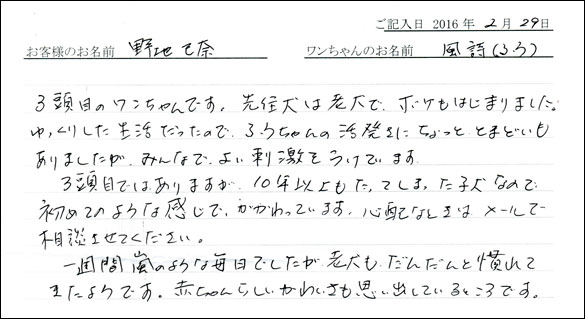 ご記入日 2016 年 2 月 29 日
お客様のお名前 野地 奈 ワンちゃんのお名前 風詩(ふう)
3頭目のワンちゃんです。先住犬は老犬で、ボケもはじまりました。
ゆっくりした生活だったので、ふうちゃんの活発さにちょっと とまどいも
ありましたが、みんなで、よい刺激をうけています。
3頭目ではありますが、10年以上もたってしまった子犬なので
初めてのような感じで、かかわっています。心配なときは メールで
相談させてください。
一週間嵐のような毎日でしたが、老犬も、だんだんと慣れて
きたようです。赤ちゃんらしいかわいさも思い出しているところです。